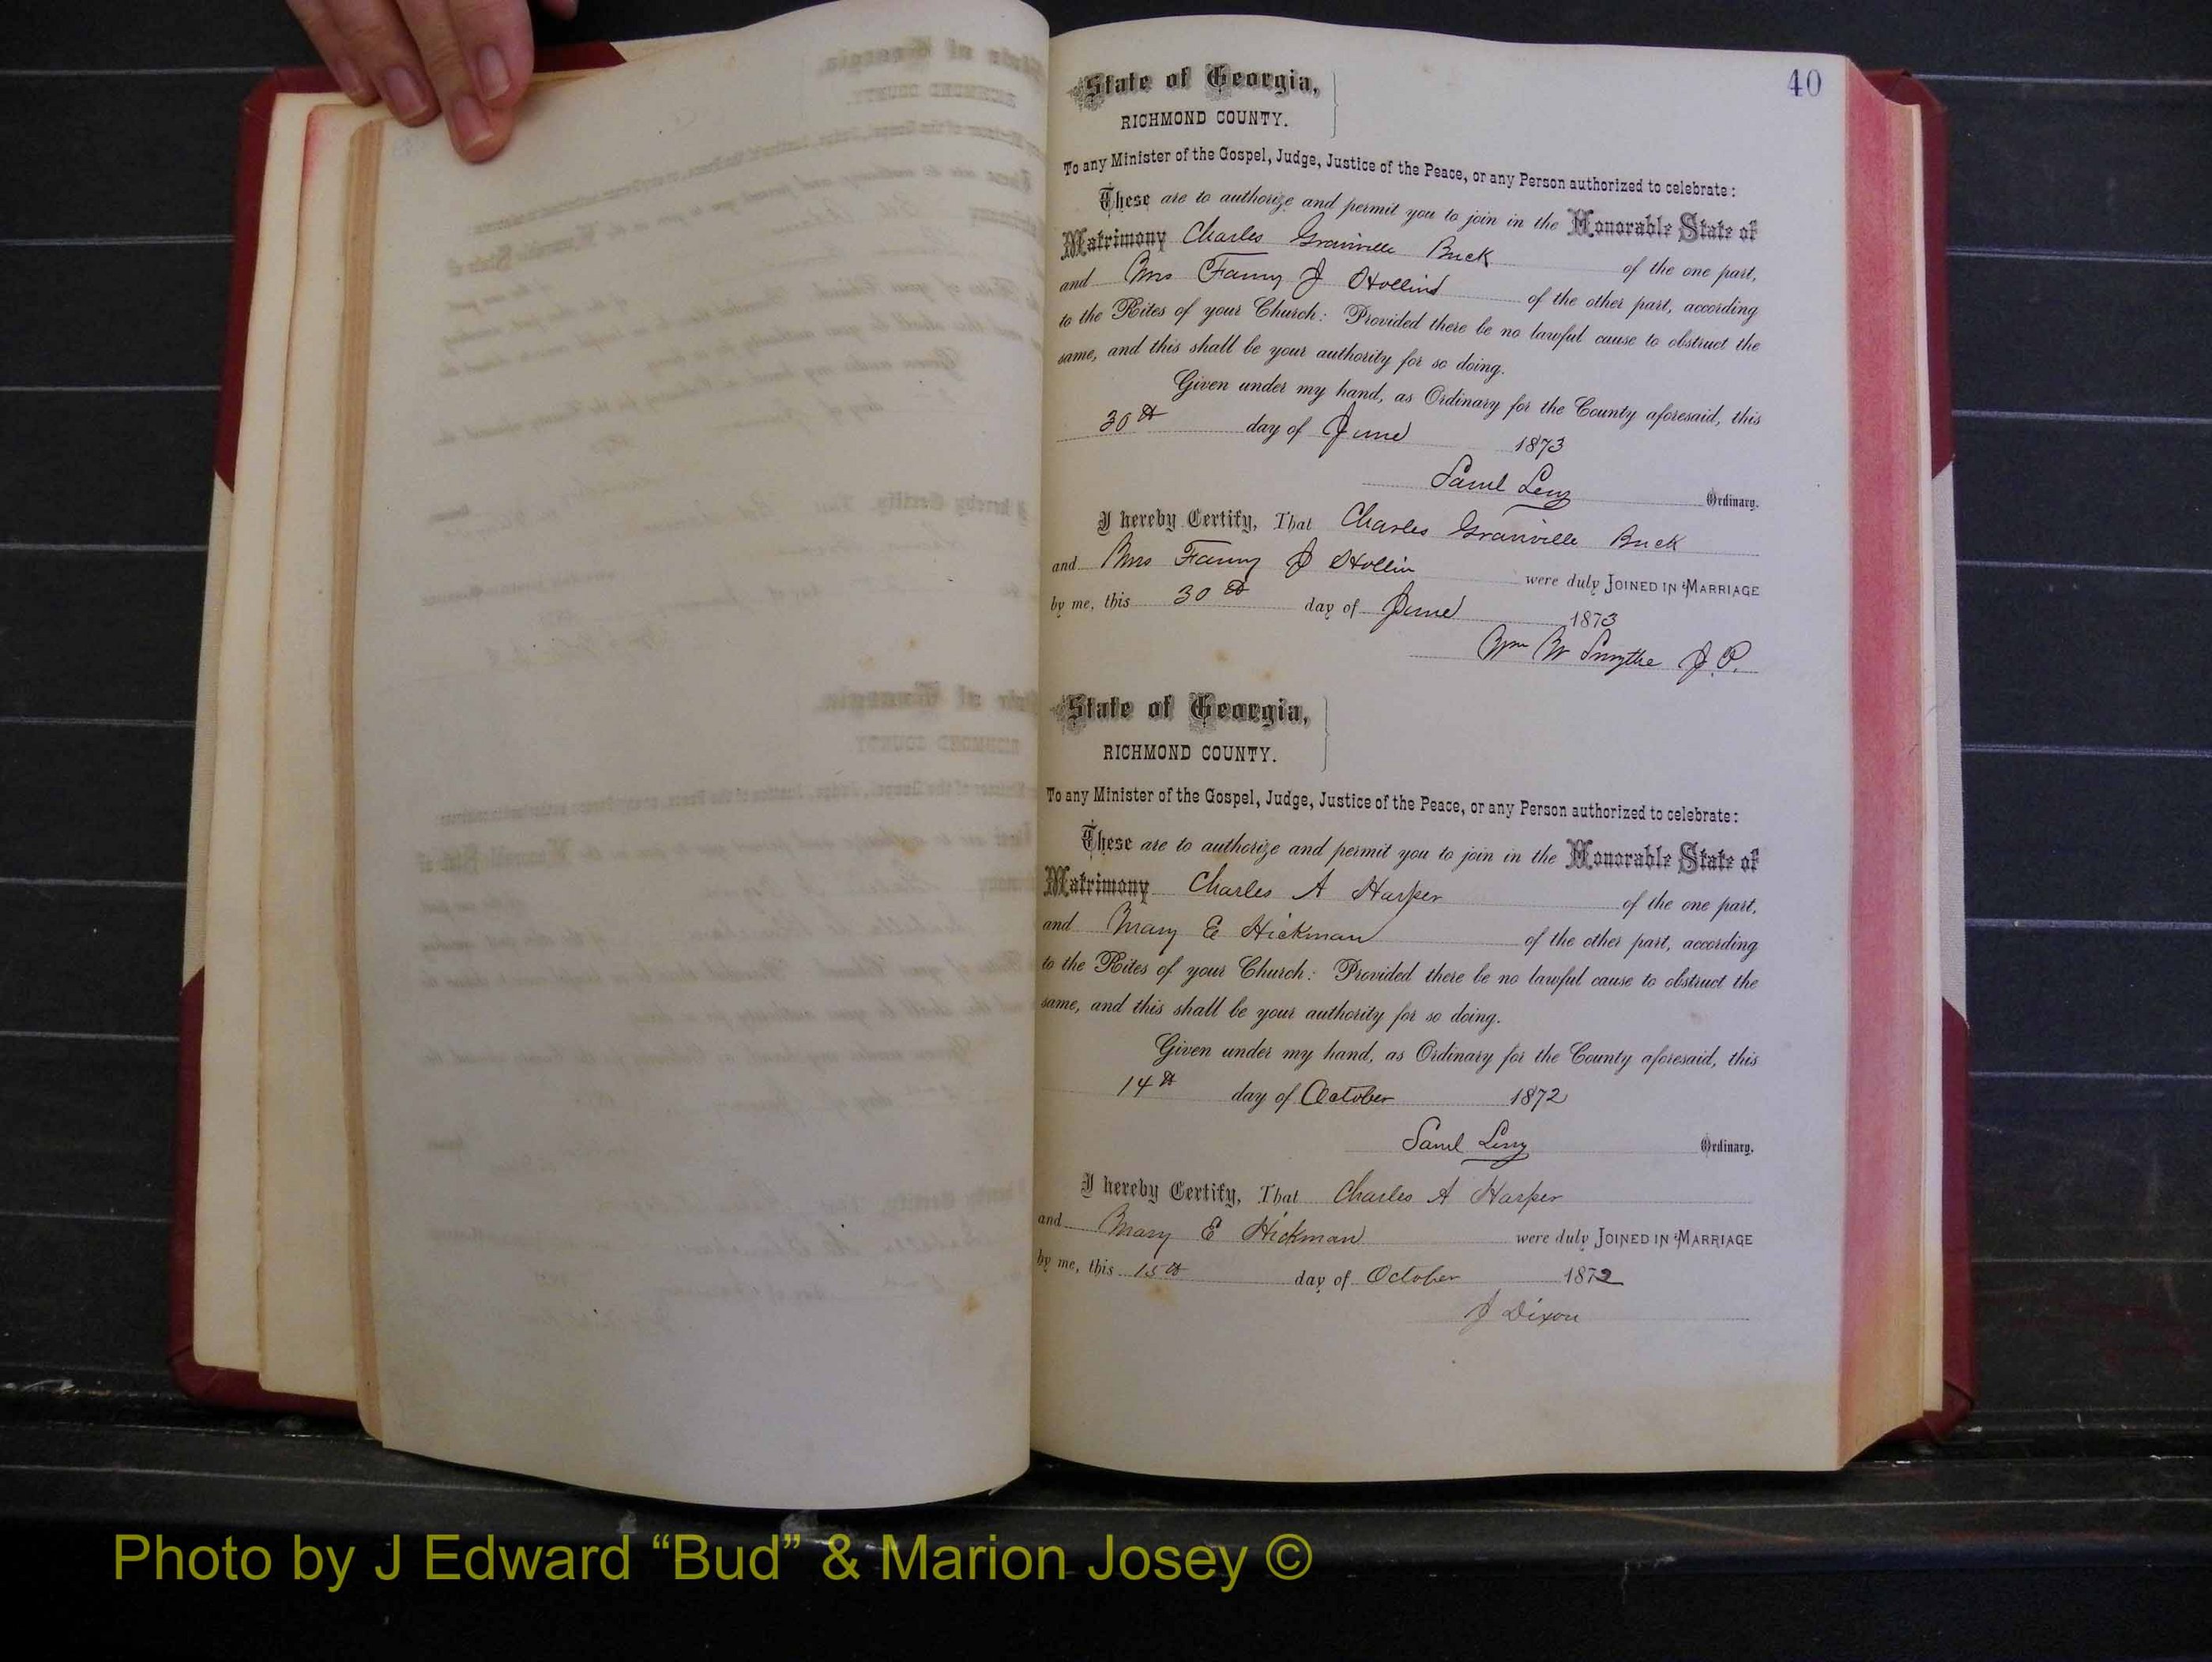 40
State of Georgia,
RICHMOND COUNTY.
To any Minister of the Gospel, Judge, Justice of the Peace, or any Person authorized to celebrate:
These are to authorize and permit you to join in the Honorable State of
Matrimony Charles Granville Buck of the one part,
and Mrs Fanny J Hollins of the other part, according
to the Rites of your Church: Provided there be no lawful cause to obstruct the
same, and this shall be your authority for so doing.
Given under my hand, as Ordinary for the County aforesaid, this
30th day of June 1873
Saml Levy Ordinary.
I hereby Certify, That Charles Granville Buck
and Mrs Fanny J Hollin were duly JOINED IN MARRIAGE
by me, this 30th day of June 1873
Wm W Smythe J.P.
State of Georgia,
RICHMOND COUNTY.
To any Minister of the Gospel, Judge, Justice of the Peace, or any Person authorized to celebrate:
These are to authorize and permit you to join in the Honorable State of
Matrimony Charles A Harper of the one part,
and Mary E Hickman of the other part, according
to the Rites of your Church: Provided there be no lawful cause to obstruct the
same, and this shall be your authority for so doing.
Given under my hand, as Ordinary for the County aforesaid, this
14th day of October 1872
Saml Levy Ordinary.
I hereby Certify, That Charles A Harper
and Mary E Hickman were duly JOINED IN MARRIAGE
by me, this 15th day of October 1872
J Dixon
Photo by J Edward “Bud” & Marion Josey ©